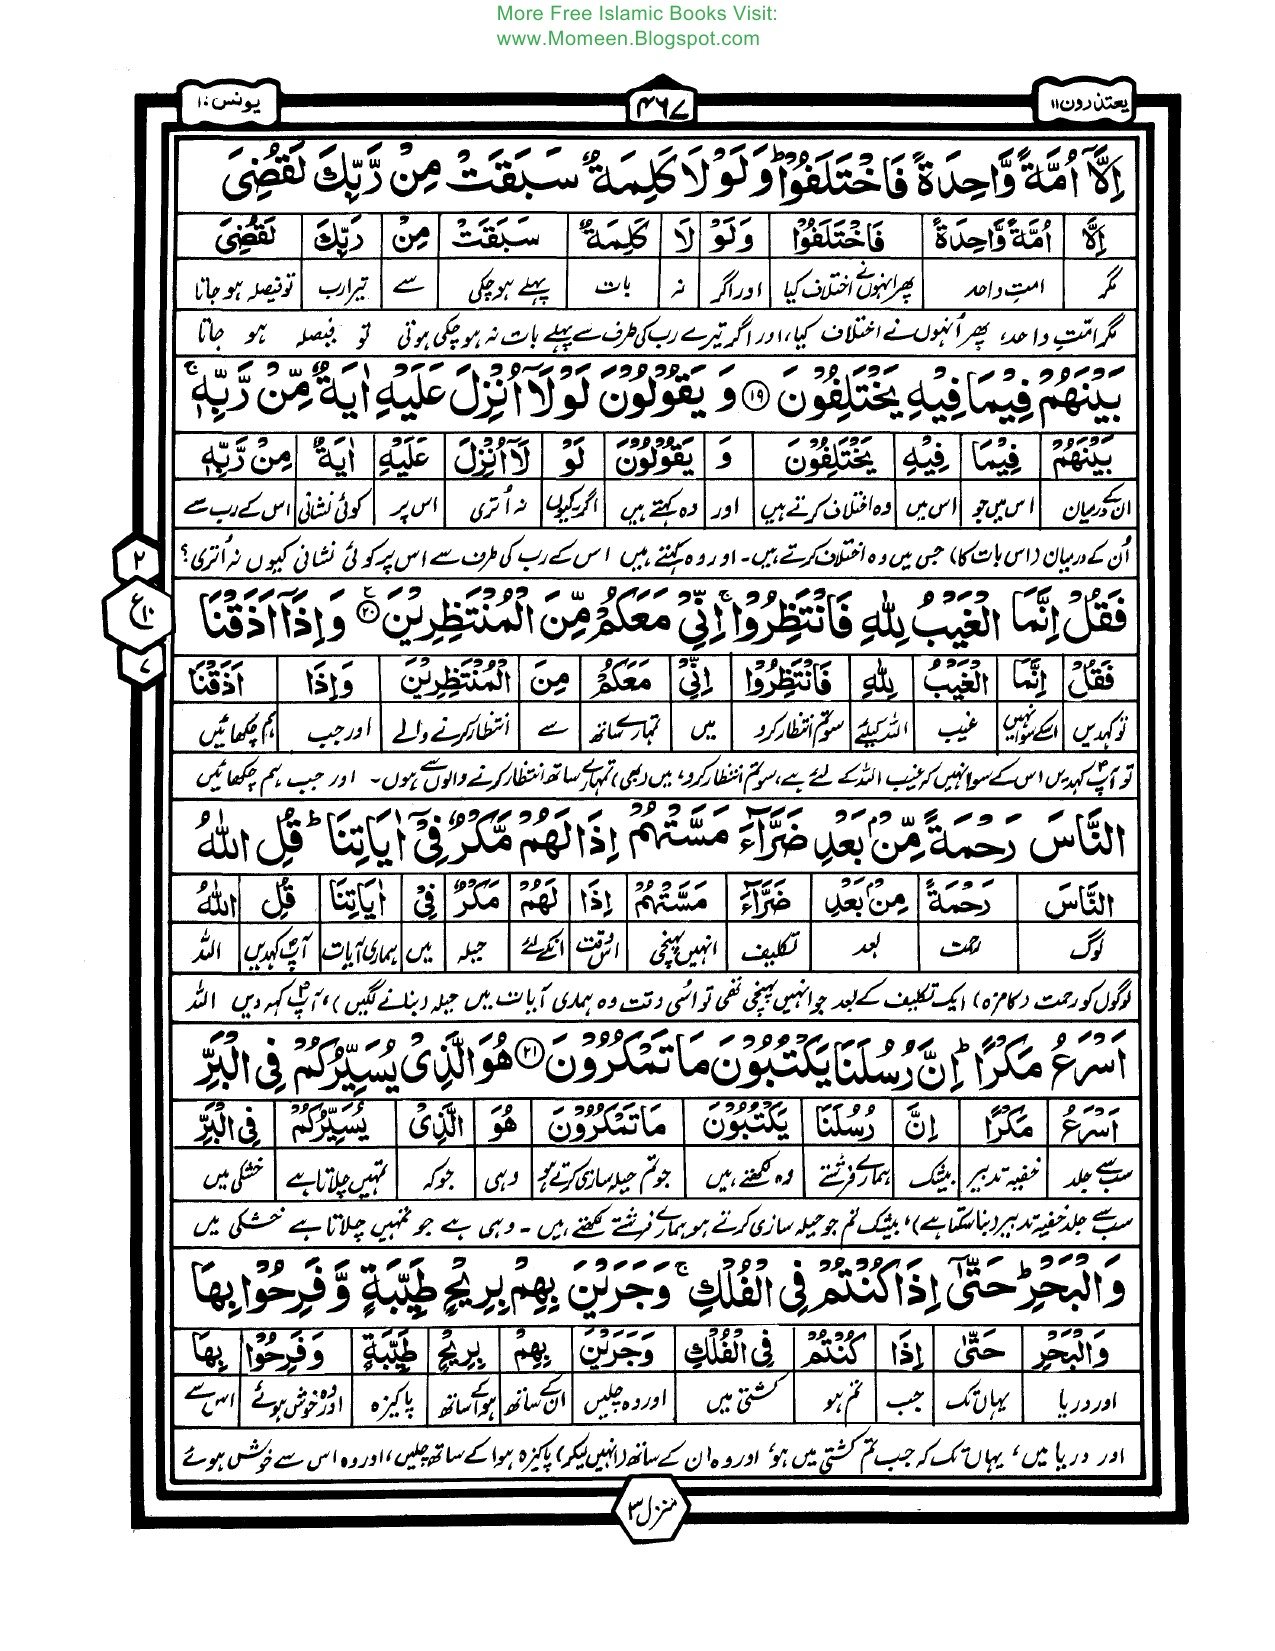 More Free Islamic Books Visit:
www.Momeen.Blogspot.com
یعتذرون ۱۱ ۴۶۷ یونس ۱۰
اِلَّاۤ اُمَّةً وَّاحِدَةً فَاخْتَلَفُوْا ؕ وَلَوْ لَا كَلِمَةٌ سَبَقَتْ مِنْ رَّبِّكَ لَقُضِیَ
اِلَّا اُمَّةً وَّاحِدَةً فَاخْتَلَفُوْا وَلَوْ لَا كَلِمَةٌ سَبَقَتْ مِنْ رَبِّكَ لَقُضِیَ
مگر امتِ واحد پھر انہوں نے اختلاف کیا اور اگر نہ بات پہلے ہو چکی سے تیرا رب تو فیصلہ ہو جاتا
مگر امّتِ واحد، پھر اُنہوں نے اختلاف کیا، اور اگر تیرے رب کی طرف سے پہلے بات نہ ہو چکی ہوتی تو فیصلہ ہو جاتا
بَیْنَهُمْ فِیْمَا فِیْهِ یَخْتَلِفُوْنَ ﴿۱۹﴾ وَ یَقُوْلُوْنَ لَوْ لَاۤ اُنْزِلَ عَلَیْهِ اٰیَةٌ مِّنْ رَّبِّهٖ ۚ
بَیْنَهُمْ فِیْمَا فِیْهِ یَخْتَلِفُوْنَ وَ یَقُوْلُوْنَ لَوْ لَاۤ اُنْزِلَ عَلَیْهِ اٰیَةٌ مِنْ رَّبِّهٖ
ان کے درمیان اس میں جو اس میں وہ اختلاف کرتے ہیں اور وہ کہتے ہیں اگر کیوں نہ اُتری اس پر کوئی نشانی اس کے رب سے
اُن کے درمیان (اس بات کا) جس میں وہ اختلاف کرتے ہیں۔ اور وہ کہتے ہیں اس کے رب کی طرف سے اس پر کوئی نشانی کیوں نہ اُتری؟
۲
ع ۱۰
۷
فَقُلْ اِنَّمَا الْغَیْبُ لِلّٰهِ فَانْتَظِرُوْا ۚ اِنِّیْ مَعَكُمْ مِّنَ الْمُنْتَظِرِیْنَ ﴿۲۰﴾ وَاِذَاۤ اَذَقْنَا
فَقُلْ اِنَّمَا الْغَیْبُ لِلّٰهِ فَانْتَظِرُوْا اِنِّیْ مَعَكُمْ مِنَ الْمُنْتَظِرِیْنَ وَاِذَا اَذَقْنَا
تو کہدیں اسکے سوا نہیں غیب اللہ کیلئے سو تم انتظار کرو میں تمہارے ساتھ سے انتظار کرنے والے اور جب ہم چکھائیں
تو آپؐ کہدیں اس کے سوا نہیں کہ غیب اللہ کے لئے ہے، سو تم انتظار کرو، میں (بھی) تمہارے ساتھ انتظار کرنے والوں سے ہوں۔ اور جب ہم چکھائیں
النَّاسَ رَحْمَةً مِّنْۢ بَعْدِ ضَرَّآءَ مَسَّتْهُمْ اِذَا لَهُمْ مَّكْرٌ فِیْۤ اٰیَاتِنَا ؕ قُلِ اللّٰهُ
النَّاسَ رَحْمَةً مِنْۢ بَعْدِ ضَرَّآءَ مَسَّتْهُمْ اِذَا لَهُمْ مَكْرٌ فِیْ اٰیَاتِنَا قُلِ اللّٰهُ
لوگ رحمت بعد تکلیف انہیں پہنچی اس وقت انکے لئے حیلہ میں ہماری آیات آپؐ کہدیں اللہ
لوگوں کو رحمت (کا مزہ) ایک تکلیف کے بعد جو انہیں پہنچی تھی تو اسی وقت وہ ہماری آیات میں حیلہ (بنانے لگیں)، آپؐ کہہ دیں اللہ
اَسْرَعُ مَكْرًا ؕ اِنَّ رُسُلَنَا یَكْتُبُوْنَ مَا تَمْكُرُوْنَ ﴿۲۱﴾ هُوَ الَّذِیْ یُسَیِّرُكُمْ فِی الْبَرِّ
اَسْرَعُ مَكْرًا اِنَّ رُسُلَنَا یَكْتُبُوْنَ مَا تَمْكُرُوْنَ هُوَ الَّذِیْ یُسَیِّرُكُمْ فِی الْبَرِّ
سب سے جلد خفیہ تدبیر بیشک ہمارے فرشتے وہ لکھتے ہیں جو تم حیلہ سازی کرتے ہو وہی جو کہ تمہیں چلاتا ہے خشکی میں
سب سے جلد خفیہ تدبیر (بنا سکتا ہے)، بیشک تم جو حیلہ سازی کرتے ہو ہمارے فرشتے لکھتے ہیں۔ وہی ہے جو تمہیں چلاتا ہے خشکی میں
وَالْبَحْرِ ؕ حَتّٰۤی اِذَا كُنْتُمْ فِی الْفُلْكِ ۚ وَجَرَیْنَ بِهِمْ بِرِیْحٍ طَیِّبَةٍ وَّفَرِحُوْا بِهَا
وَالْبَحْرِ حَتّٰی اِذَا كُنْتُمْ فِی الْفُلْكِ وَجَرَیْنَ بِهِمْ بِرِیْحٍ طَیِّبَةٍ وَفَرِحُوْا بِهَا
اور دریا یہاں تک جب تم ہو کشتی میں اور وہ چلیں ان کے ساتھ ہوا کے ساتھ پاکیزہ اور وہ خوش ہوئے اس سے
اور دریا میں، یہاں تک کہ جب تم کشتی میں ہو، اور وہ ان کے ساتھ (انہیں لیکر) پاکیزہ ہوا کے ساتھ چلیں، اور وہ اس سے خوش ہوئے
منزل ۳